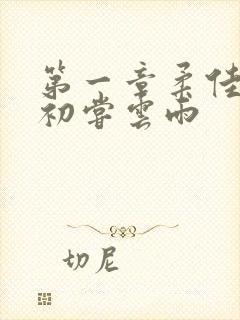 第一章柔佳
初嘗雲雨
切尼